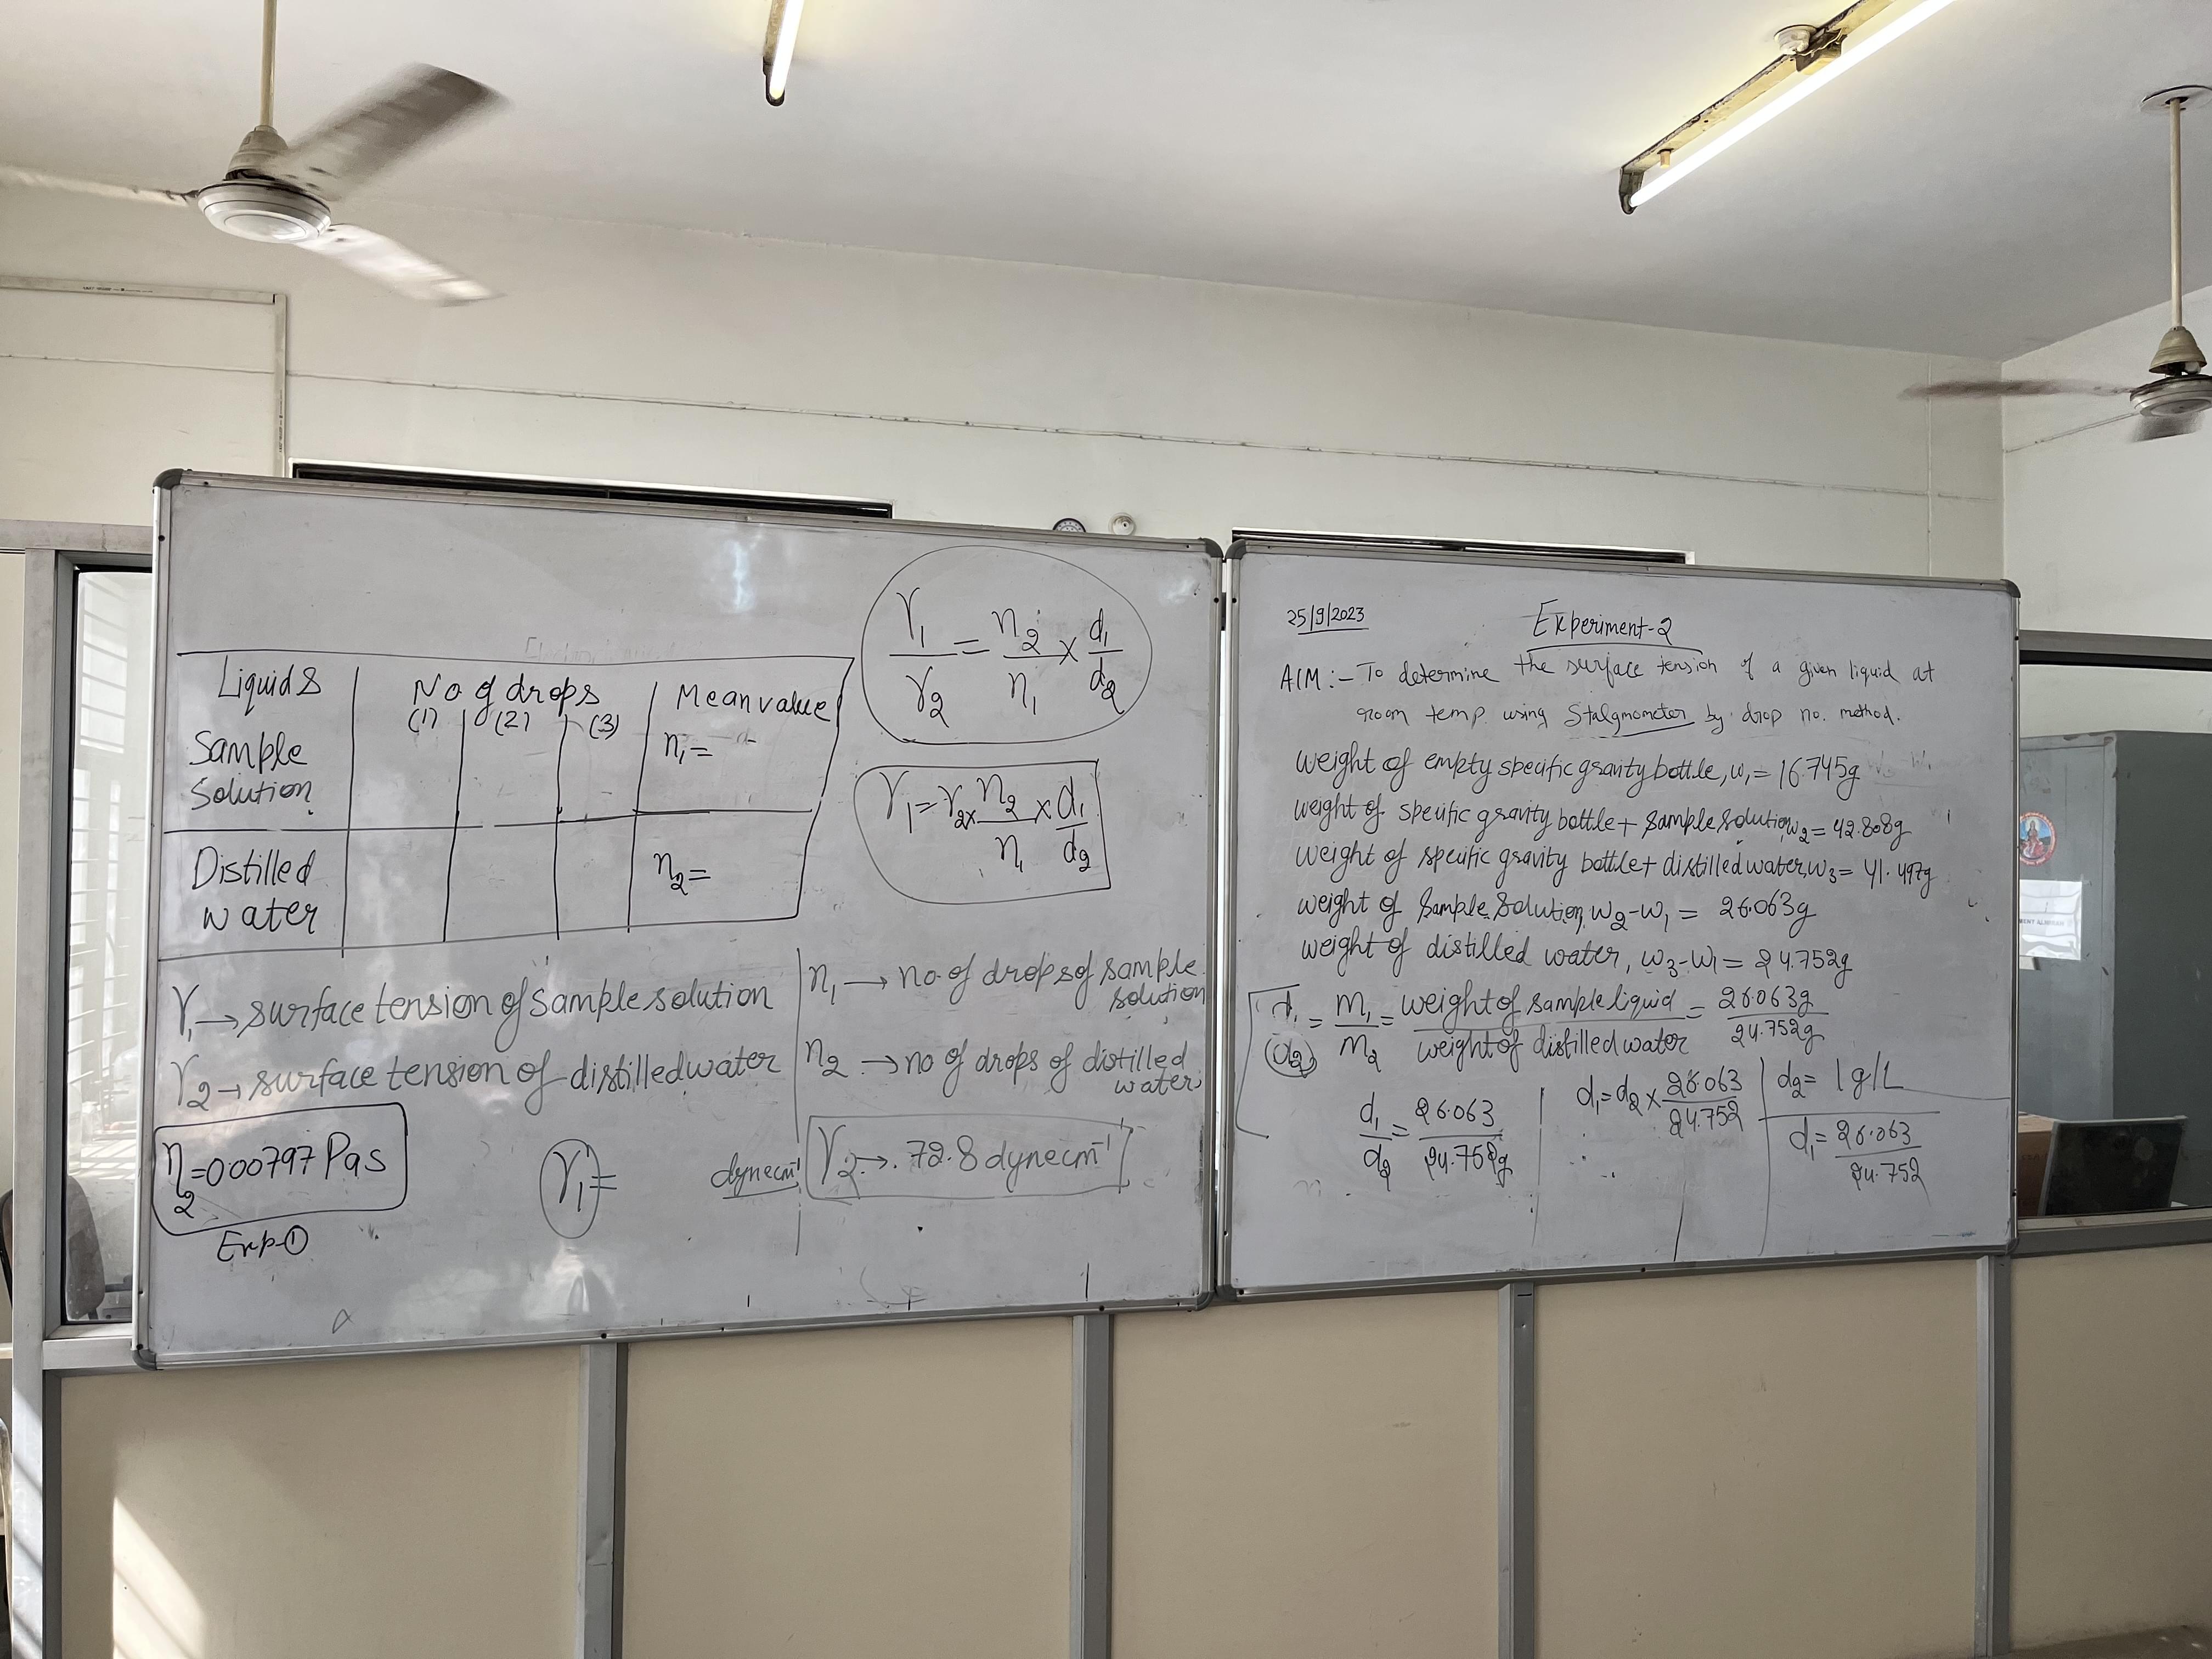 Liquids
No. of drops
Mean value
(1) (2) (3)
Sample
Solution
n₁ =
Distilled
water
n₂ =
γ₁/γ₂ = n₂/n₁ × d₁/d₂
γ₁ = γ₂ × n₂/n₁ × d₁/d₂
γ₁ → surface tension of sample solution
γ₂ → surface tension of distilled water
n₁ → no. of drops of sample
solution
n₂ → no of drops of distilled
water
η₂ = 0.00797 Pas
Exp-①
γ₁ =
dynecm⁻¹
γ₂ → 72.8 dynecm⁻¹
25/9/2023
Experiment-2
AIM :- To determine the surface tension of a given liquid at
room temp. using Stalgmometer by drop no. method.
weight of empty specific gravity bottle, w₁ = 16.745g
weight of specific gravity bottle + sample solution w₂ = 42.808g
weight of specific gravity bottle + distilled water, w₃ = 41.497g
weight of sample solution, w₂-w₁ = 26.063g
weight of distilled water, w₃-w₁ = 24.752g
d₁/d₂ = m₁/m₂ = weight of sample liquid/weight of distilled water = 26.063g/24.752g
d₁/d₂ = 26.063/24.752g
d₁ = d₂ × 26.063/24.752
d₂ = 1 g/L
d₁ = 26.063/24.752